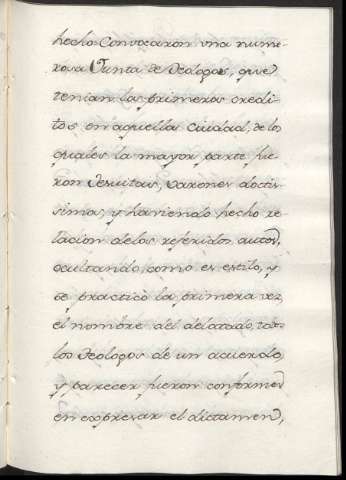 hecho Convocaron una nume-
rosa Junta de Teologos, que
tenian las primeras credi-
tos en aquella Ciudad, de los
quales la mayor parte fue-
ron Jesuitas, Varones doctis-
simos, y haviendo hecho re-
lacion delos referidos autos,
ocultando, como es estilo, y
se practicò la primera vez,
el nombre del delatado, todos
los Teologos de un acuerdo,
y parecer fueron conformes
en expresar el dictamen,